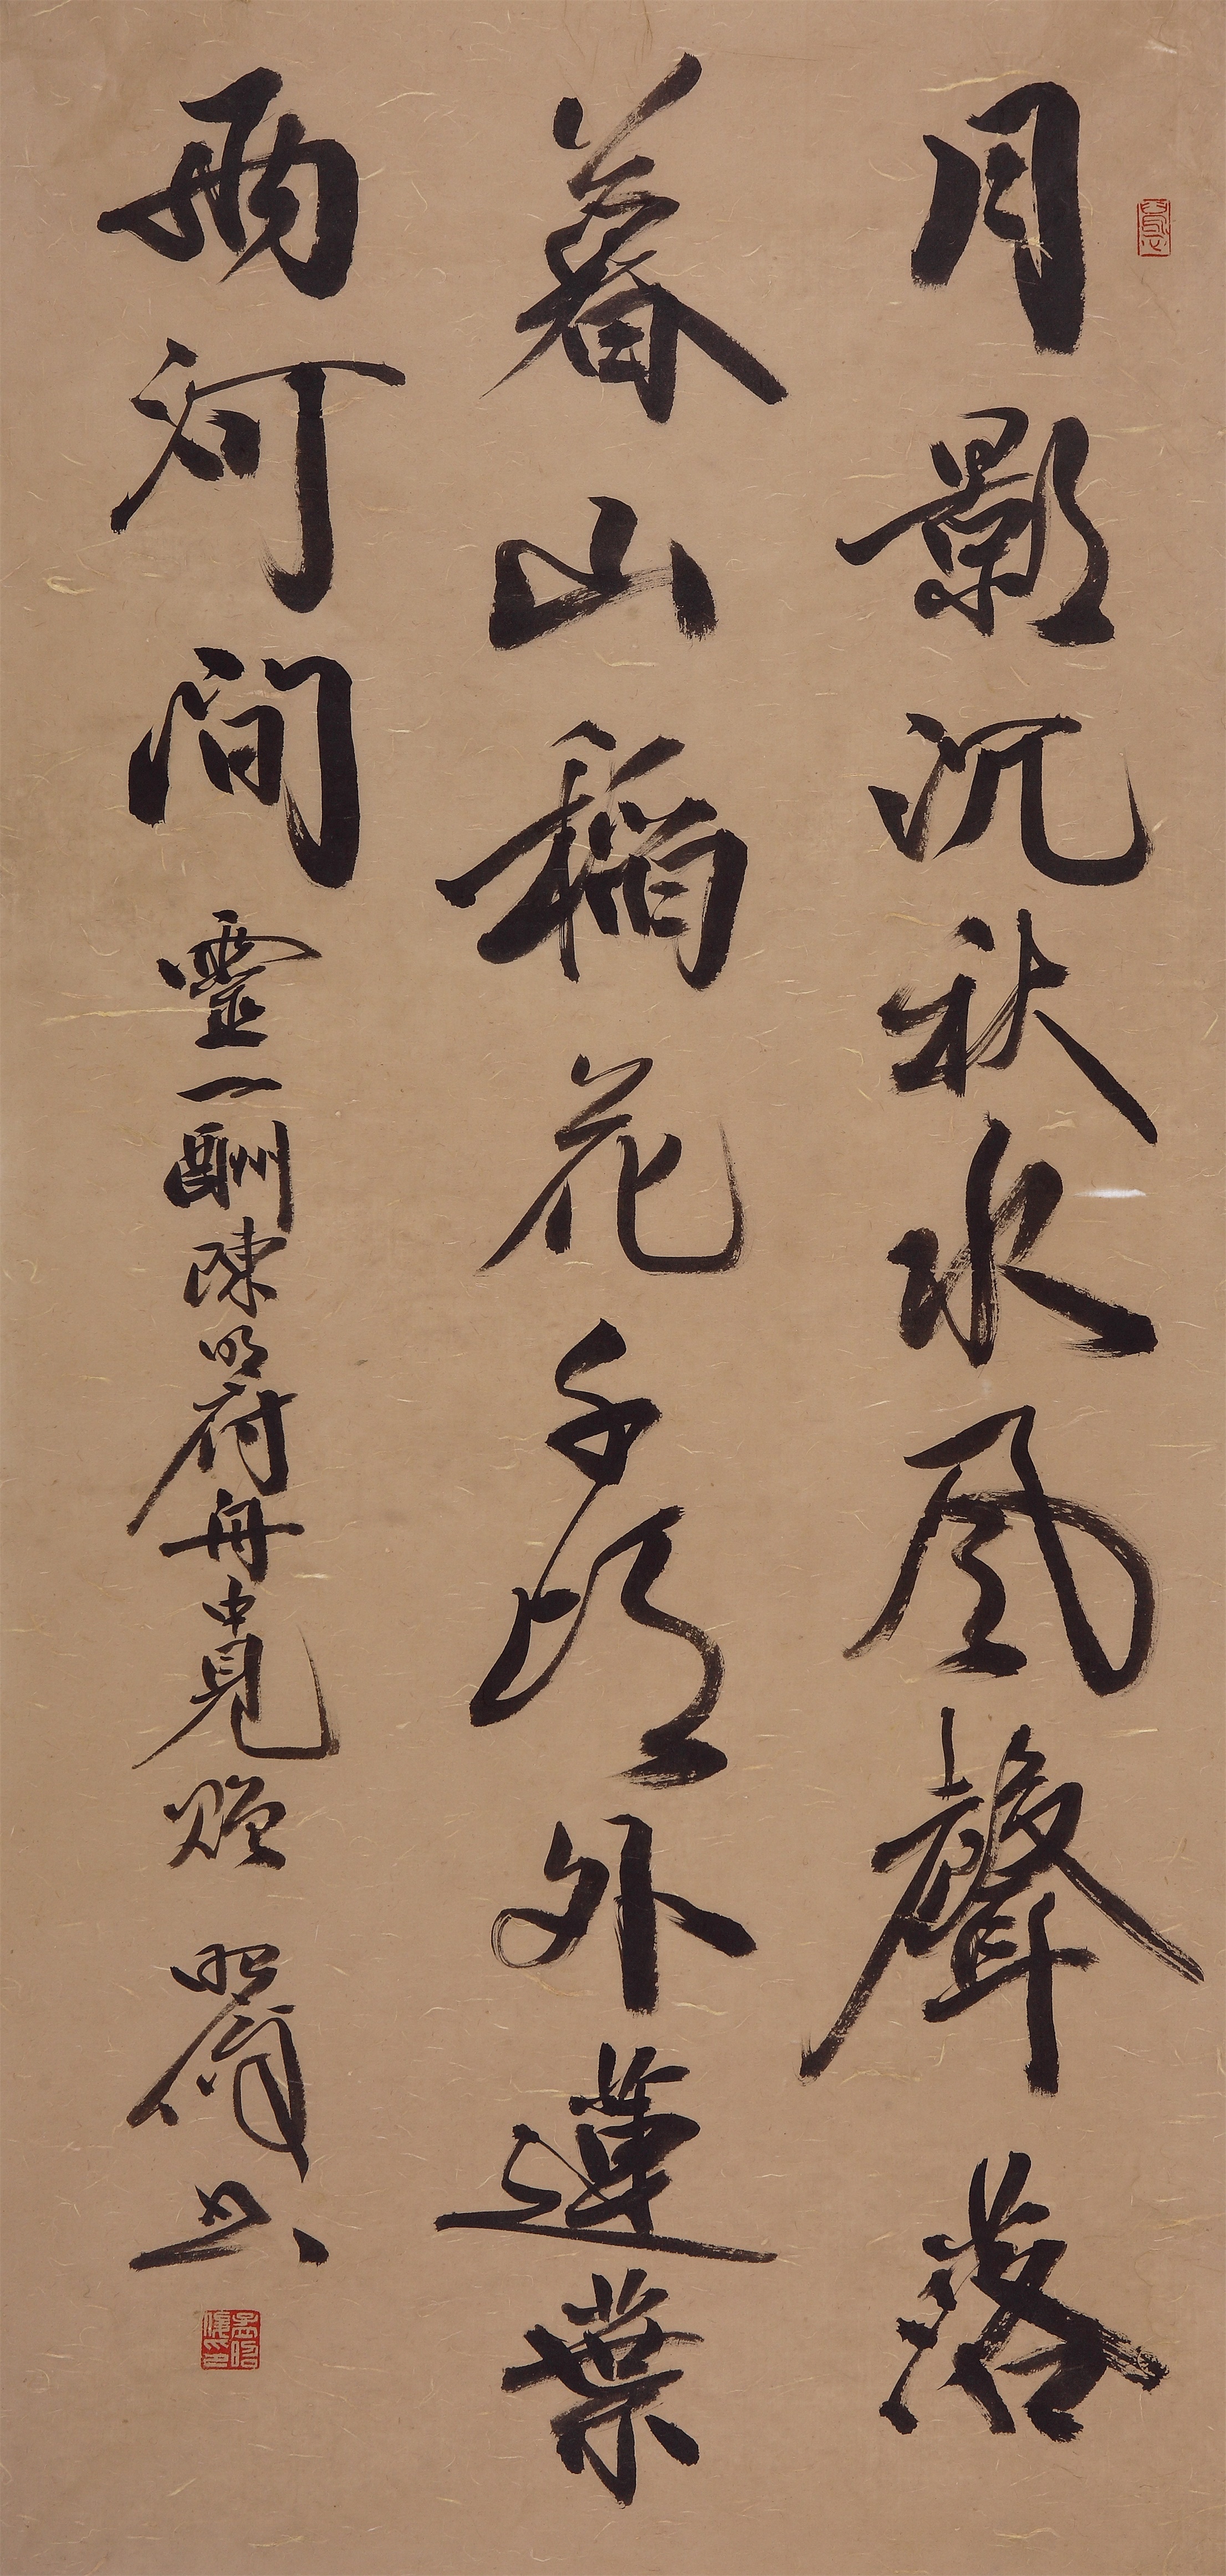 月影沉秋水風聲落
暮山稻花千頃外蓮葉
兩河間靈一酬陳明府舟中見贈